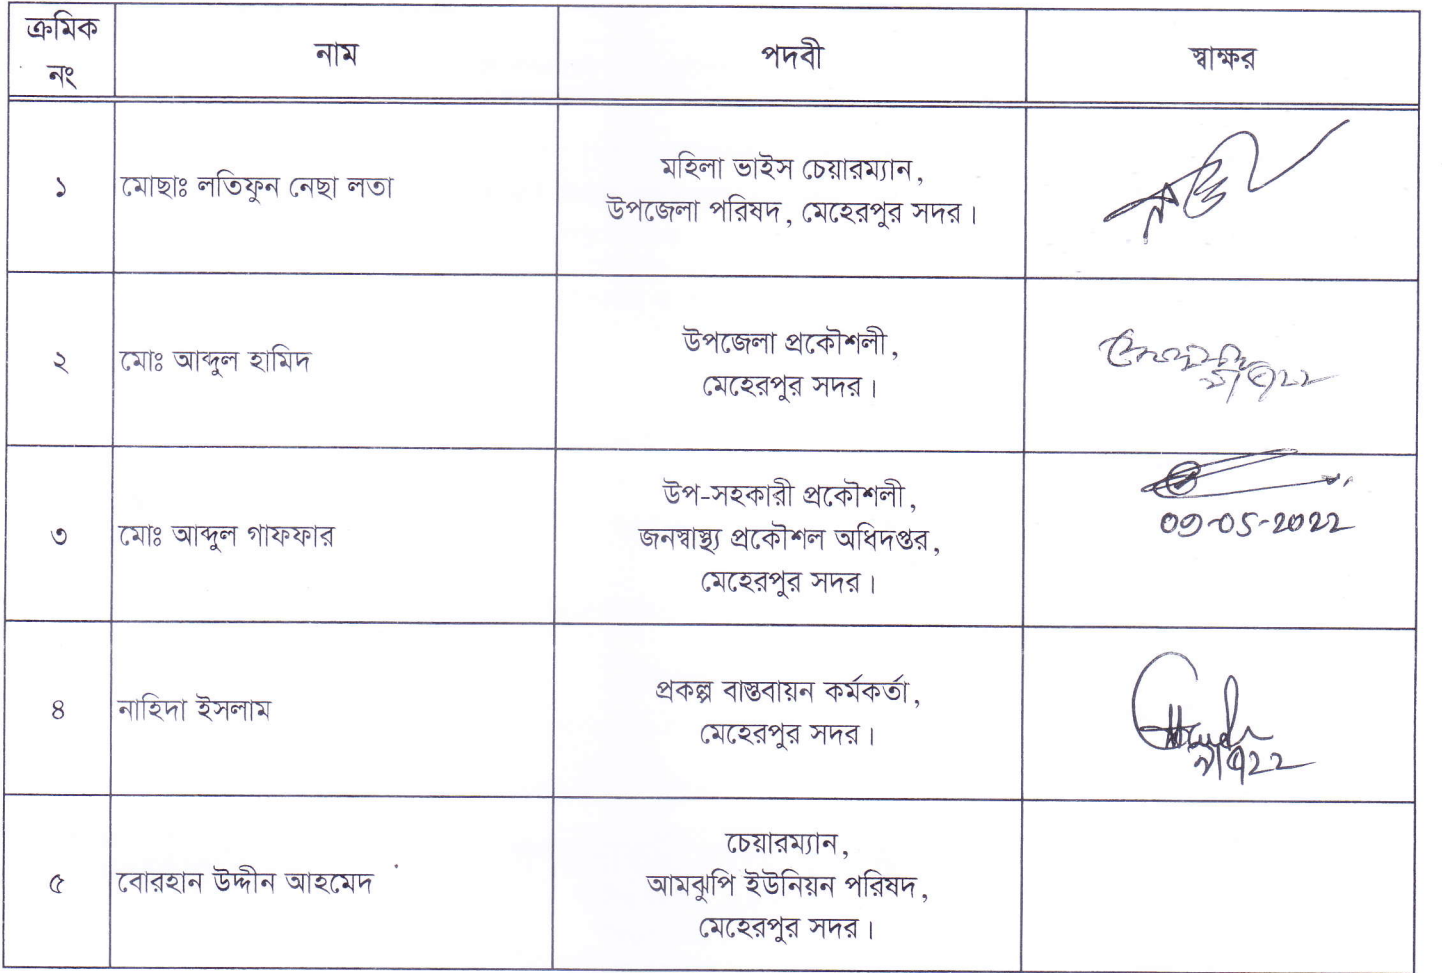 ক্রমিক
নং
নাম
পদবী
স্বাক্ষর
১
মোছাঃ লতিফুন নেছা লতা
মহিলা ভাইস চেয়ারম্যান,
উপজেলা পরিষদ, মেহেরপুর সদর।
২
মোঃ আব্দুল হামিদ
উপজেলা প্রকৌশলী,
মেহেরপুর সদর।
৩
মোঃ আব্দুল গাফফার
উপ-সহকারী প্রকৌশলী,
জনস্বাস্থ্য প্রকৌশল অধিদপ্তর,
মেহেরপুর সদর।
09-05-2022
৪
নাহিদা ইসলাম
প্রকল্প বাস্তবায়ন কর্মকর্তা,
মেহেরপুর সদর।
৫
বোরহান উদ্দীন আহমেদ
চেয়ারম্যান,
আমঝুপি ইউনিয়ন পরিষদ,
মেহেরপুর সদর।